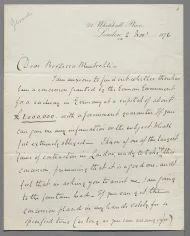 Whitehall Place,
London 2 Novr 1872
Dear Professor
I am anxious to find out whether there has
been a concession granted by the German Government
for a railway in Germany at a capital of about
£ 1,000,000, with a government guarantee. If you
can give me any information on the subject I shall
feel extremely obliged. I have one of the largest
firms of contractors in London ready to take this
concession presuming that it is a good one, and I
feel that in asking you to assist me I am going
to the fountain head. If you can get the
concession placed in my hands solely for a
specified time (as long as you can arrange for)